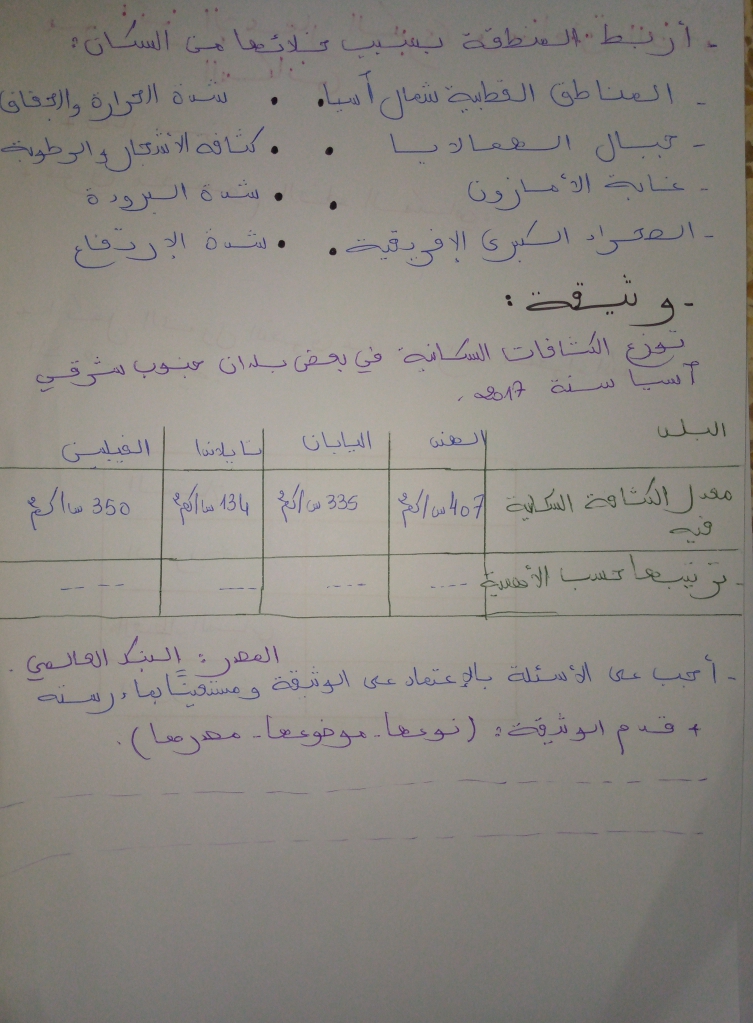 - أربط المنطقة بسبب خلائها من السكان:
- المناطق القطبية شمال آسيا. . شدة الحرارة والجفاف
- جبال الهملايا . . كثافة الأشجار والرطوبة
- غابة الأمازون . . شدة البرودة
- الصحراء الكبرى الإفريقية . . شدة الارتفاع
- وثيقة:
توزع الكثافات السكانية في بعض بلدان جنوب شرقي
آسيا سنة 2017.
البلد الهند اليابان تايلاندا الفيليبين
معدل الكثافة السكانية فيه 407 س/كم² 335 س/كم² 134 س/كم² 350 س/كم²
- ترتيبها حسب الأهمية .... .... .... ....
المصدر: البنك العالمي.
- أجب على الأسئلة بالإعتماد على الوثيقة ومستعينًا بما درسته
+ قدم الوثيقة: (نوعها - موضوعها - مصدرها).